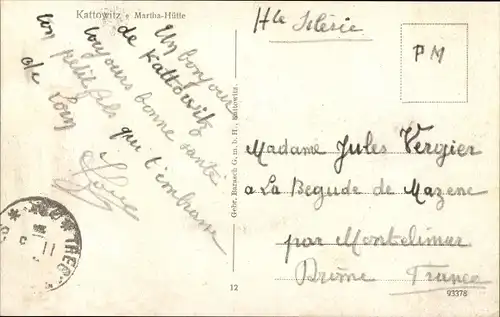 Kattowitz • Martha-Hütte
Un bonjour
de Kattowitz
toujours bonne santé
ton petit fils qui t'embrasse
de loin
Hte Silésie
PM
Madame Jules Vergier
a La Begude de Mazenc
par Montelimar
Drôme France
Gebr. Barasch G. m. b. H., Kattowitz.
12
93378
TRESO
11